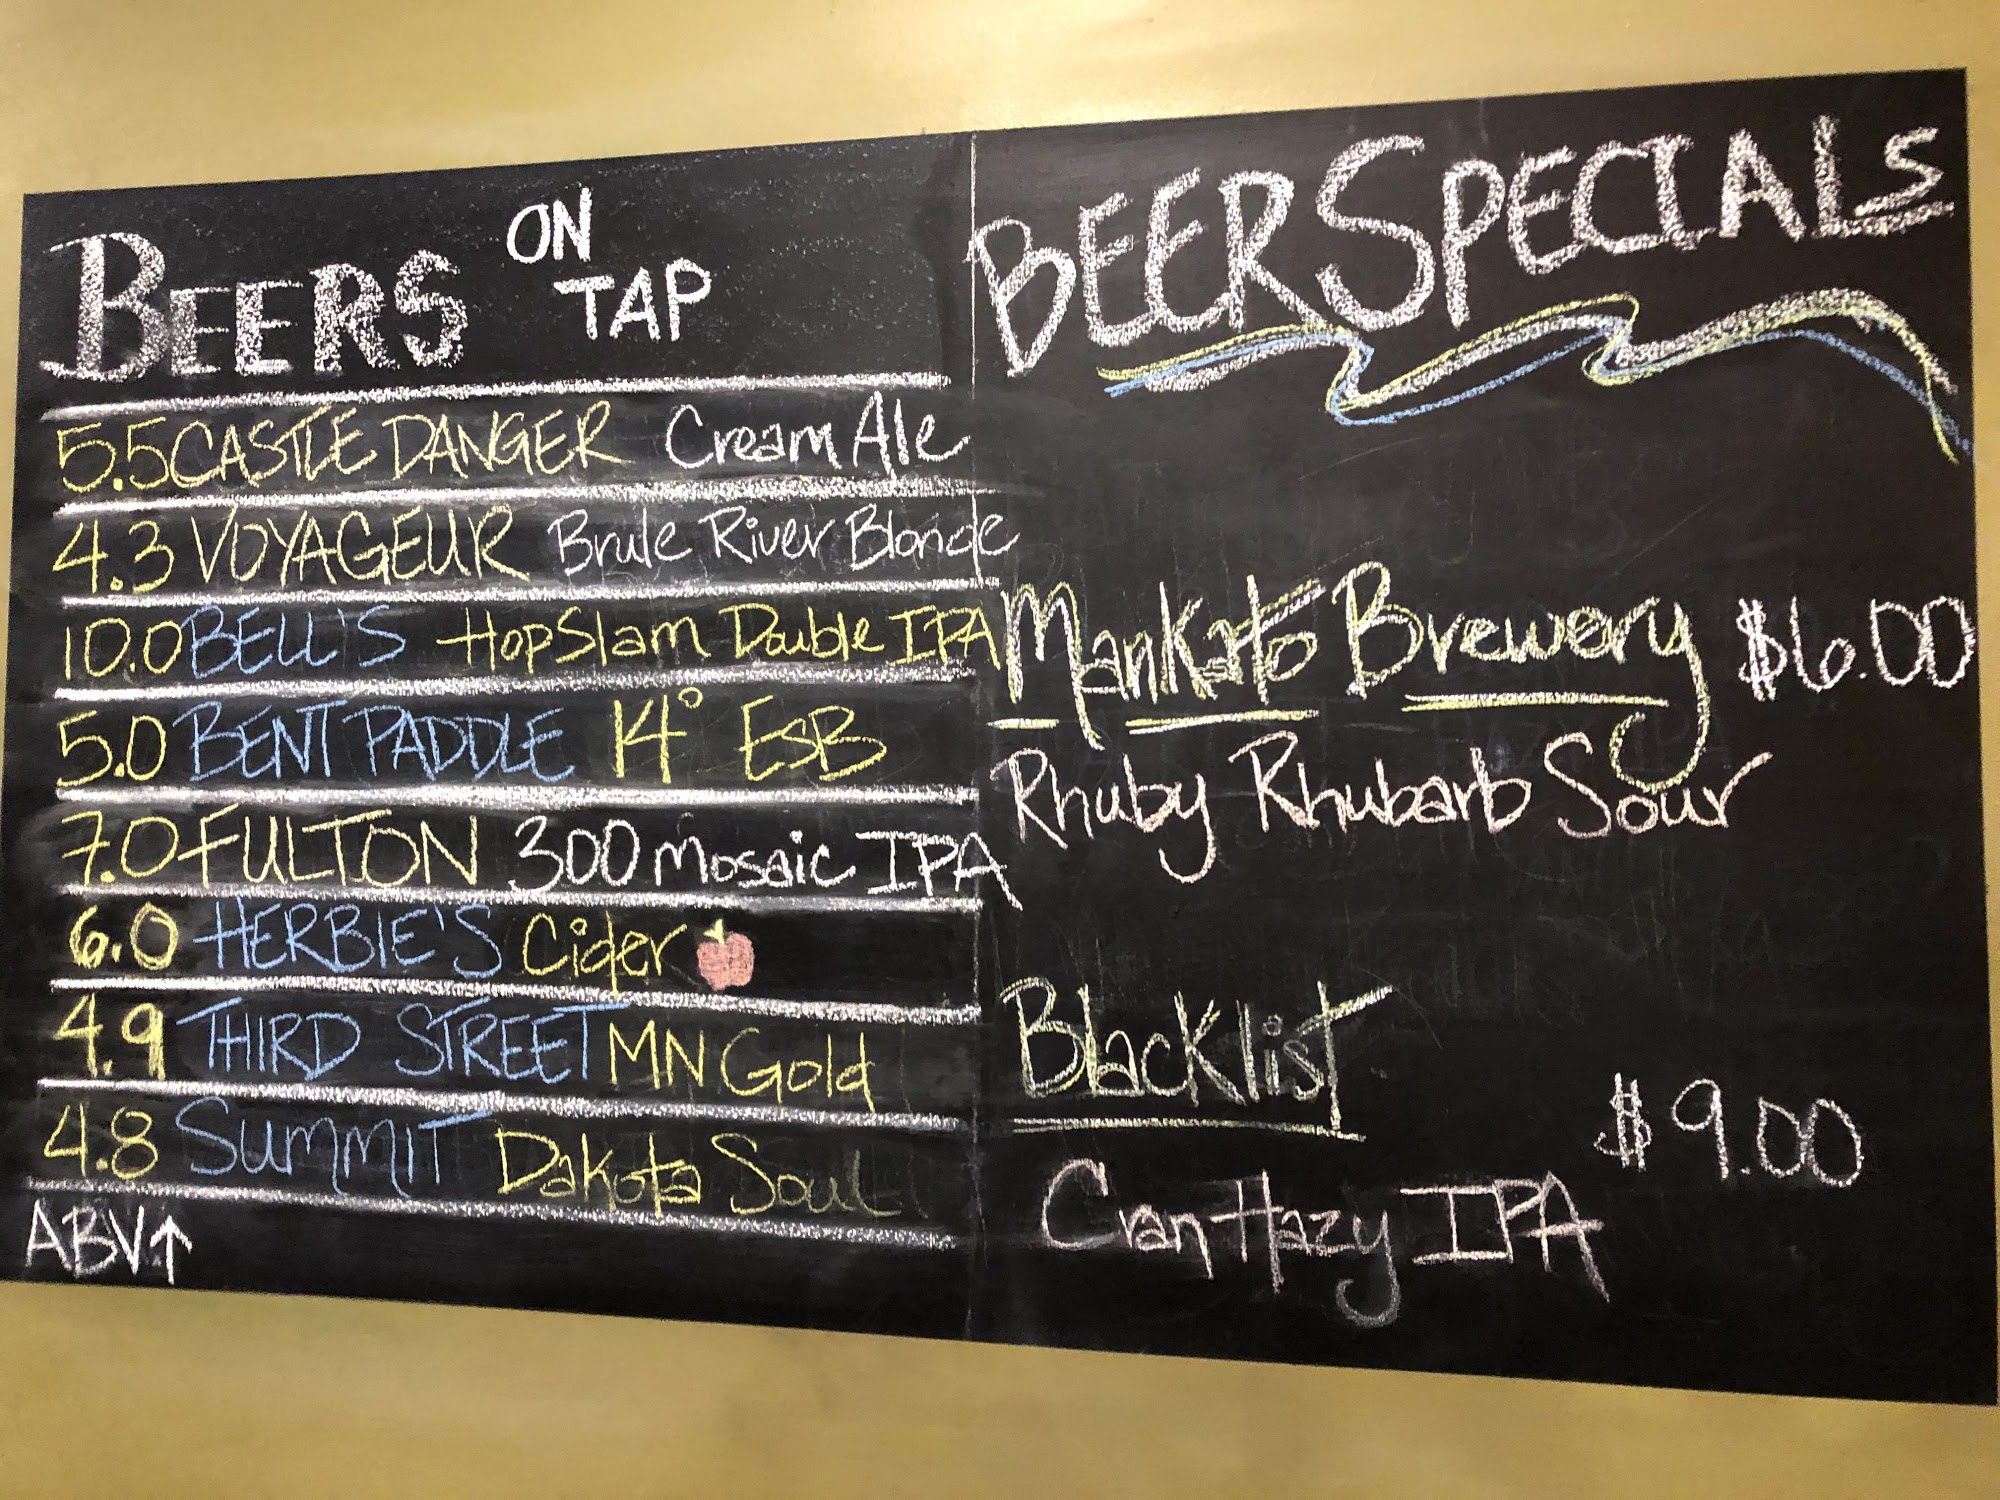 BEERS ON TAP
5.5 CASTLE DANGER Cream Ale
4.3 VOYAGEUR Brule River Blonde
10.0 BELL'S HopSlam Double IPA
5.0 BENT PADDLE 14° ESB
7.0 FULTON 300 Mosaic IPA
6.0 HERBIE'S Cider
4.9 THIRD STREET MN Gold
4.8 SUMMIT Dakota Soul
ABV↑
BEER SPECIALS
Mankato Brewery $6.00
Rhuby Rhubarb Sour
Blacklist
$9.00
Cran Hazy IPA